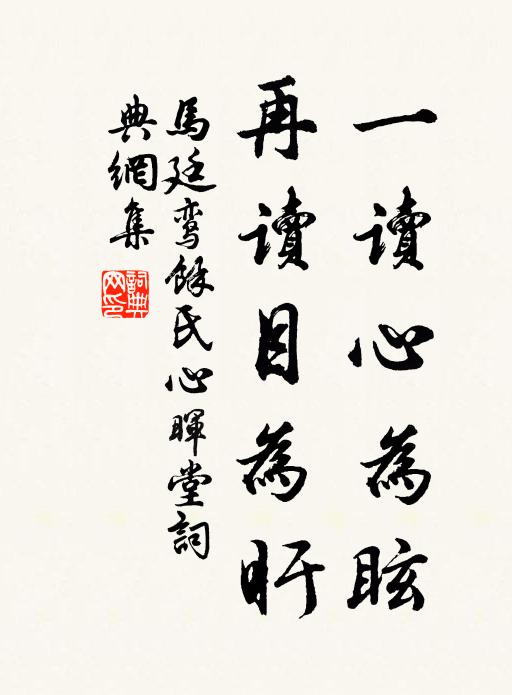 一讀心為眩
再讀目為盱
馬廷鸞餘氏心暉堂詞
典網集
詞典網印